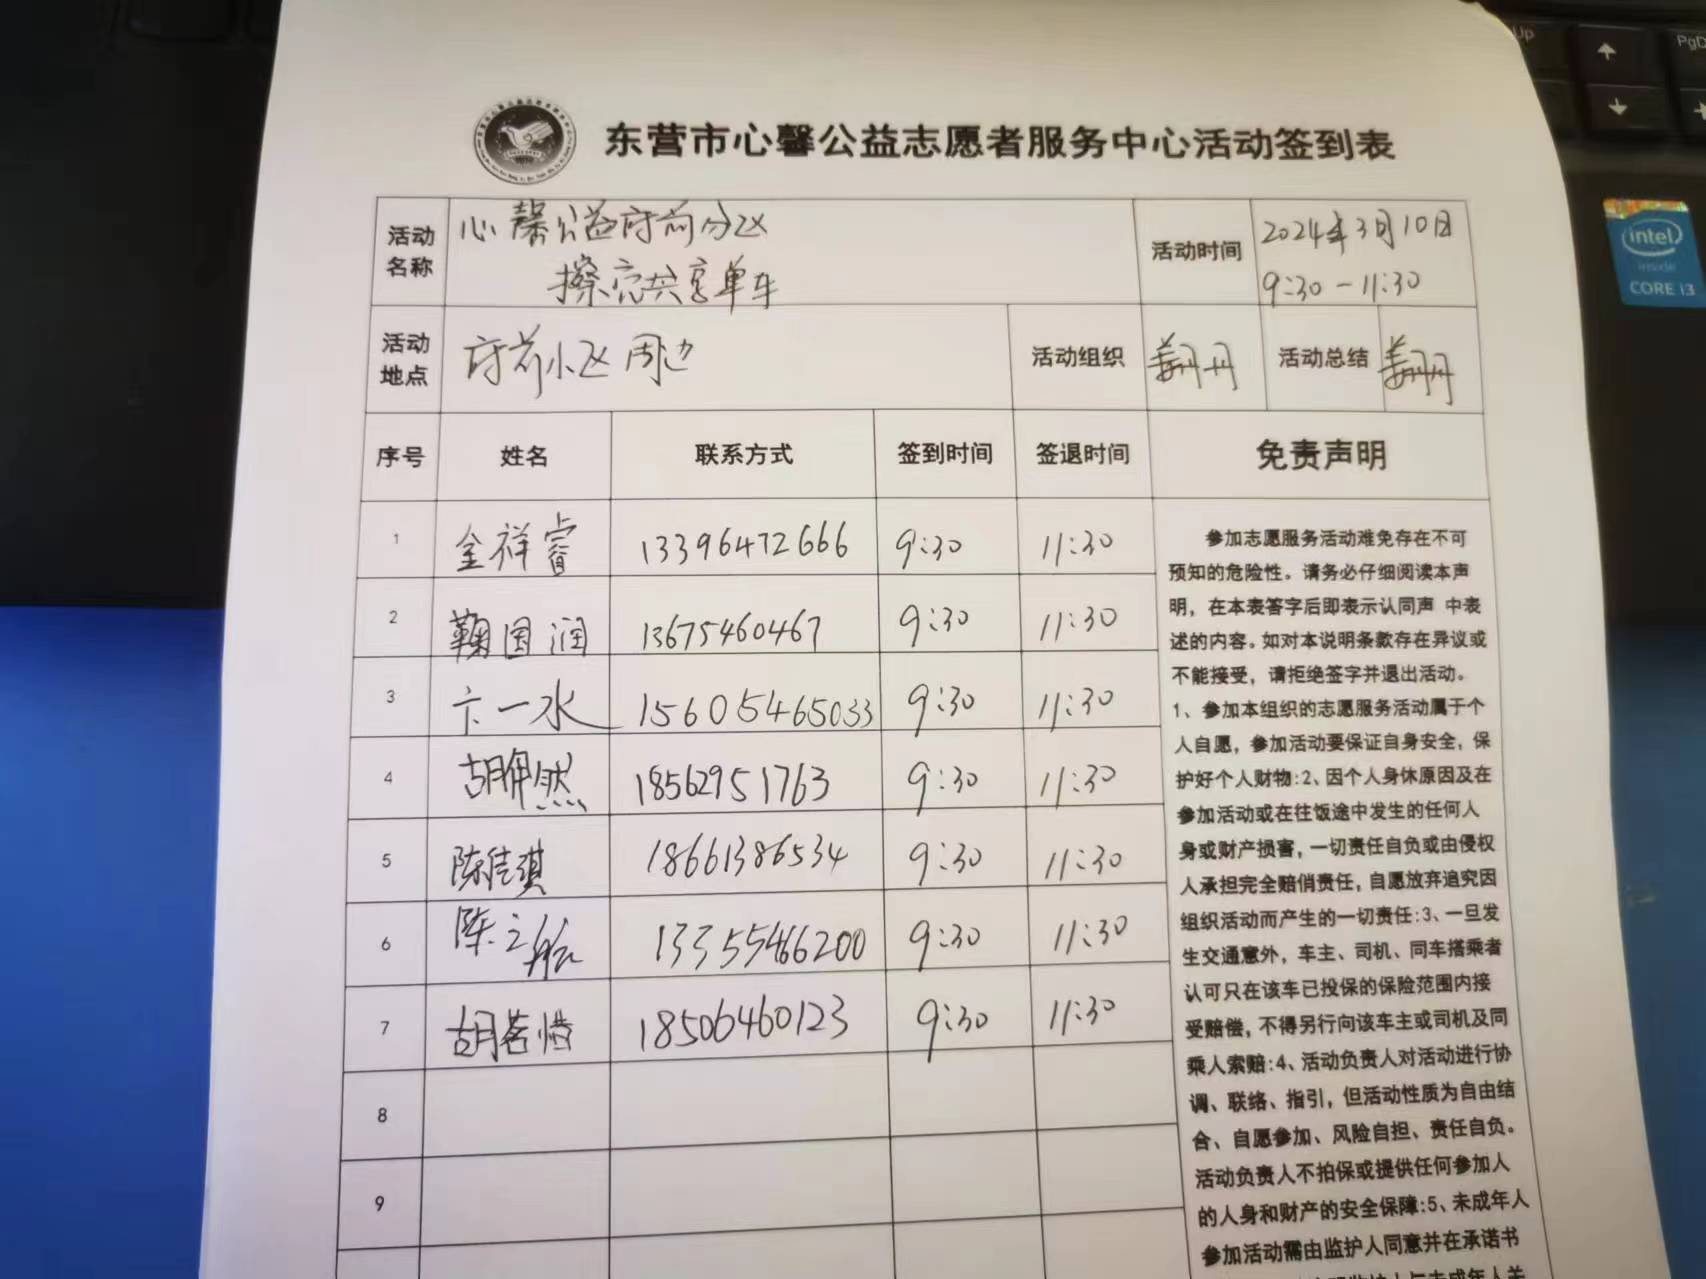 东营市心馨公益志愿者服务中心活动签到表
活动名称
心馨公益府前分区
擦亮共享单车
活动时间
2024年3月10日
9:30-11:30
活动地点
府前小区周边
活动组织
姜丹丹
活动总结
姜丹丹
序号 姓名 联系方式 签到时间 签退时间 免责声明
1 金祥睿 13396472666 9:30 11:30
2 鞠国润 13675460467 9:30 11:30
3 卞一水 15605465033 9:30 11:30
4 胡冉然 18562951763 9:30 11:30
5 陈佳琪 18661386534 9:30 11:30
6 陈立航 13355466200 9:30 11:30
7 胡若惜 18506460123 9:30 11:30
8
9
参加志愿服务活动难免存在不可
预知的危险性。请务必仔细阅读本声
明，在本表答字后即表示认同声 中表
述的内容。如对本说明条款存在异议或
不能接受，请拒绝签字并退出活动。
1、参加本组织的志愿服务活动属于个
人自愿，参加活动要保证自身安全，保
护好个人财物:2、因个人身休原因及在
参加活动或在往饭途中发生的任何人
身或财产损害，一切责任自负或由侵权
人承担完全赔俏责任，自愿放弃追究因
组织活动而产生的一切责任:3、一旦发
生交通意外，车主、司机、同车搭乘者
认可只在该车已投保的保险范围内接
受赔偿，不得另行向该车主或司机及同
乘人索赔:4、活动负责人对活动进行协
调、联络、指引，但活动性质为自由结
合、自愿参加、风险自担、责任自负。
活动负责人不拍保或提供任何参加人
的人身和财产的安全保障:5、未成年人
参加活动需由监护人同意并在承诺书
Up
PgD
intel
inside
CORE i3